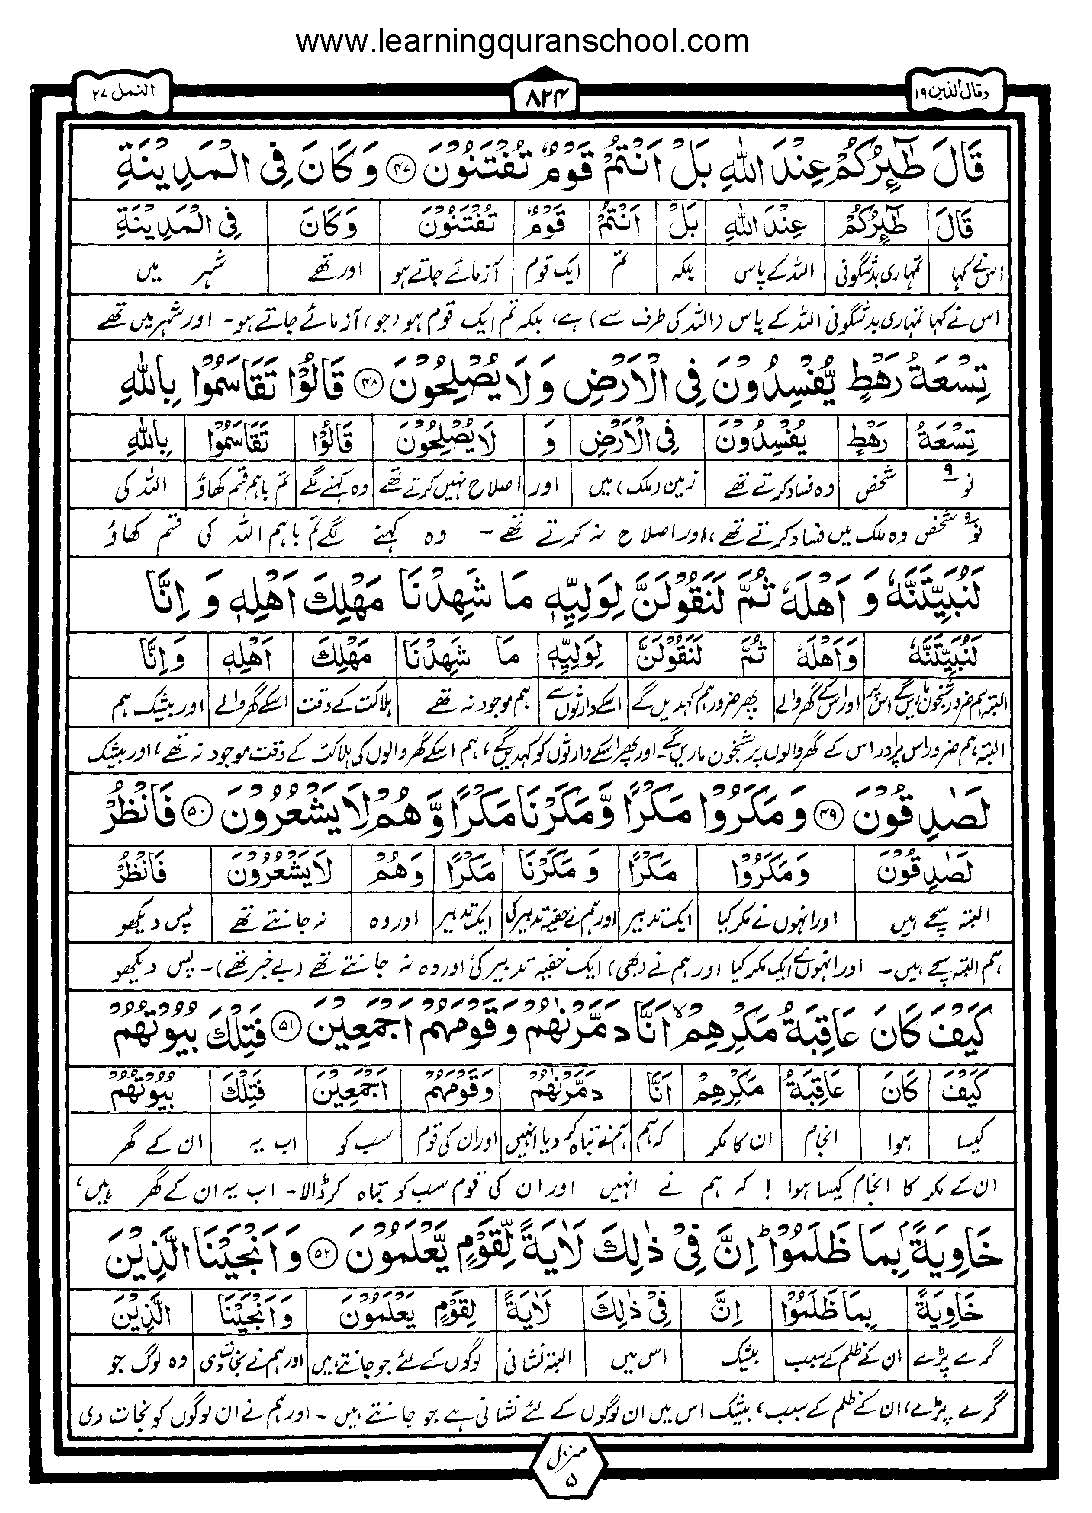 www.learningquranschool.com
وقال الذین ۱۹ ۸۲۴ النمل ۲۷
قَالَ طٰٓئِرُكُمْ عِنْدَ اللّٰهِ بَلْ اَنْتُمْ قَوْمٌ تُفْتَنُوْنَ ﴿۴۷﴾ وَ كَانَ فِی الْمَدِیْنَةِ
قَالَ طٰٓئِرُكُمْ عِنْدَ اللّٰهِ بَلْ اَنْتُمْ قَوْمٌ تُفْتَنُوْنَ وَ كَانَ فِی الْمَدِیْنَةِ
اس نے کہا تمہاری بدشگونی اللہ کے پاس بلکہ تم ایک قوم آزمائے جاتے ہو اور تھے شہر میں
اس نے کہا تمہاری بدشگونی اللہ کے پاس (اللہ کی طرف سے) ہے، بلکہ تم ایک قوم ہو (جو) آزمائے جاتے ہو۔ اور شہر میں تھے
تِسْعَةُ رَهْطٍ یُّفْسِدُوْنَ فِی الْاَرْضِ وَ لَا یُصْلِحُوْنَ ﴿۴۸﴾ قَالُوْا تَقَاسَمُوْا بِاللّٰهِ
تِسْعَةُ رَهْطٍ یُفْسِدُوْنَ فِی الْاَرْضِ وَ لَا یُصْلِحُوْنَ قَالُوْا تَقَاسَمُوْا بِاللّٰهِ
نو ۹ شخص وہ فساد کرتے تھے زمین (ملک) میں اور اصلاح نہیں کرتے تھے وہ کہنے لگے تم باہم قسم کھاؤ اللہ کی
نو ۹ شخص وہ ملک میں فساد کرتے تھے، اور اصلاح نہ کرتے تھے۔ وہ کہنے لگے تم باہم اللہ کی قسم کھاؤ
لَنُبَیِّتَنَّهٗ وَ اَهْلَهٗ ثُمَّ لَنَقُوْلَنَّ لِوَلِیِّهٖ مَا شَهِدْنَا مَهْلِكَ اَهْلِهٖ وَ اِنَّا
لَنُبَیِّتَنَّهٗ وَ اَهْلَهٗ ثُمَّ لَنَقُوْلَنَّ لِوَلِیِّهٖ مَا شَهِدْنَا مَهْلِكَ اَهْلِهٖ وَ اِنَّا
البتہ ہم ضرور شبخون ماریں گے اس پر اور اس کے گھر والے پھر ضرور ہم کہہ دیں گے اسکے وارثوں سے ہم موجود نہ تھے ہلاکت کے وقت اسکے گھر والے اور بیشک ہم
البتہ ہم ضرور اس پر اور اس کے گھر والوں پر شبخون ماریں گے۔ اور پھر اسکے وارثوں کو کہہ دیں گے، ہم اسکے گھر والوں کی ہلاکت کے وقت موجود نہ تھے، اور بیشک
لَصٰدِقُوْنَ ﴿۴۹﴾ وَ مَكَرُوْا مَكْرًا وَّ مَكَرْنَا مَكْرًا وَّ هُمْ لَا یَشْعُرُوْنَ ﴿۵۰﴾ فَانْظُرْ
لَصٰدِقُوْنَ وَ مَكَرُوْا مَكْرًا وَ مَكَرْنَا مَكْرًا وَ هُمْ لَا یَشْعُرُوْنَ فَانْظُرْ
البتہ سچے ہیں اور انہوں نے مکر کیا ایک تدبیر اور ہم نے خفیہ تدبیر کی ایک تدبیر اور وہ نہ جانتے تھے پس دیکھو
ہم البتہ سچے ہیں۔ اور انہوں نے ایک مکر کیا اور ہم نے (بھی) ایک خفیہ تدبیر کی اور وہ نہ جانتے تھے (بے خبر تھے)۔ پس دیکھو
كَیْفَ كَانَ عَاقِبَةُ مَكْرِهِمْ اَنَّا دَمَّرْنٰهُمْ وَ قَوْمَهُمْ اَجْمَعِیْنَ ﴿۵۱﴾ فَتِلْكَ بُیُوْتُهُمْ
كَیْفَ كَانَ عَاقِبَةُ مَكْرِهِمْ اَنَّا دَمَّرْنٰهُمْ وَ قَوْمَهُمْ اَجْمَعِیْنَ فَتِلْكَ بُیُوْتُهُمْ
کیسا ہوا انجام ان کا مکر کہ ہم ہم نے تباہ کر دیا انہیں اور ان کی قوم سب کو اب یہ ان کے گھر
ان کے مکر کا انجام کیسا ہوا ! کہ ہم نے انہیں اور ان کی قوم سب کو تباہ کر ڈالا۔ اب یہ ان کے گھر ہیں،
خَاوِیَةًۢ بِمَا ظَلَمُوْا ؕ اِنَّ فِیْ ذٰلِكَ لَاٰیَةً لِّقَوْمٍ یَّعْلَمُوْنَ ﴿۵۲﴾ وَ اَنْجَیْنَا الَّذِیْنَ
خَاوِیَةً بِمَا ظَلَمُوْا اِنَّ فِیْ ذٰلِكَ لَاٰیَةً لِقَوْمٍ یَعْلَمُوْنَ وَ اَنْجَیْنَا الَّذِیْنَ
گرے پڑے ان کے ظلم کے سبب بیشک اس میں البتہ نشانی لوگوں کے لئے جو جانتے ہیں اور ہم نے نجات دی وہ لوگ جو
گرے پڑے، ان کے ظلم کے سبب، بیشک اس میں ان لوگوں کے لئے نشانی ہے جو جانتے ہیں۔ اور ہم نے ان لوگوں کو نجات دی
منزل ۵